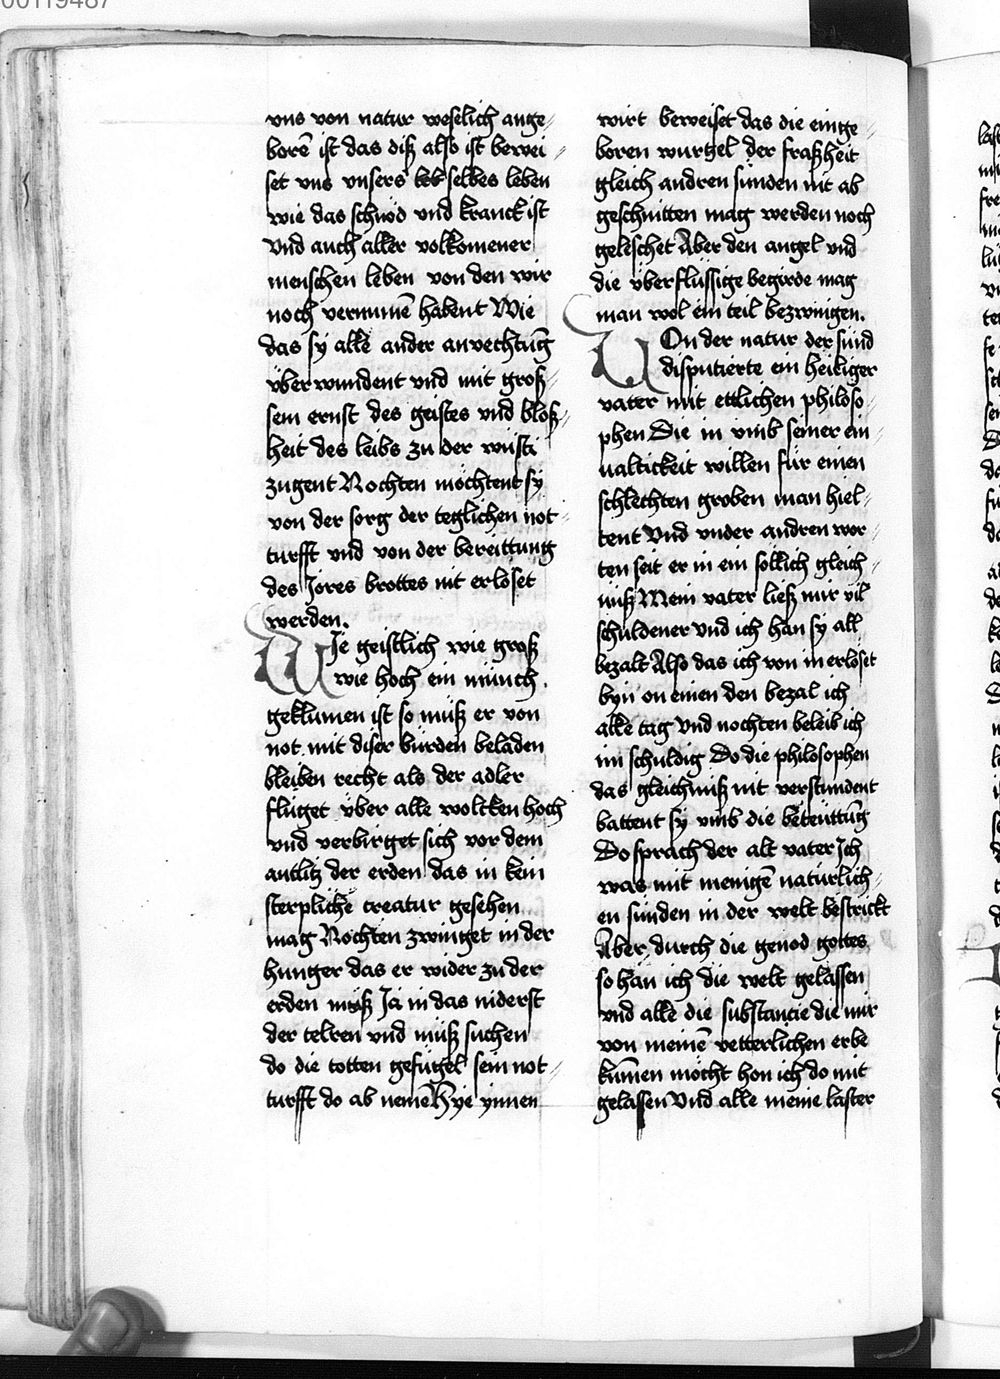 00119487
vns von natur weselich ange⸗
borē ist das diß also ist bewei⸗
set vns vnsers selbes leben
wie das schnöd vnd kranck ist
Vnd auch aller volkomener
menschen leben von den wir
noch vernumē habent Wie
das sy alle ander anvechtūg
vͤber wundent vnd mit groß⸗
sem ernst des geistes vnd bloß⸗
heit des leibs zu der wuͤsti
zugent Nochten moͤchtent sy
von der sorg der teglichen not⸗
turfft vnd von der bereittung
des Jores brottes nit erloͤset
werden.
WJe geistlich wie groß
wie hoch ein muͤnch
geklumen ist so muͤß er von
not mit diser buͤrden beladen
bleiben recht als der adler
fluͤget vͤber alle wolcken hoch
vnd verbirget sich vor dem
antlitz der erden das in kein
sterpliche creatur gesehen
mag Nochten zwinget in der
hunger das er wider zu der
erden muͤß Ja in das niderst
der telren vnd muͤß suchen
do die totten gefuͤgel sein not⸗
turfft do ab nemē Hye ynnen
wirt beweiset das die einge⸗
boren wurgel der fraßheit
gleich andren suͤnden nit ab
geschnitten mag werden noch
geleschet Aber den angel vnd
die vͤberfluͤssige begirde mag
man wol ein teil bezwingen.
VOn der natur der suͤnd
disputierte ein heiliger
vater mit ettlichen philoso⸗
phen Die in vmb seiner ein⸗
ualtickeit willen fuͤr einen
schlechten groben man hiel⸗
tent Vnd vnder andren wor⸗
ten seit er in ein soͤllich gleich⸗
nuß Mein vater ließ mir vil
schuldener vnd ich han sy all
bezalt Also das ich von in erloͤset
byn on einen den bezal ich
alle tag Vnd nochten beleib ich
im schuldig Do die philosophen
das gleichniß nit verstundent
battent sy vmb die beteuttūg
Do sprach der alt vater Jch
was mit menigē natuͤrlich⸗
en suͤnden in der welt bestrickt
Aber durch die genod gottes
so han ich die welt gelassen
vnd alle die substancie die mir
von meinē vetterlichen erbe
kūmen moͤcht hon ich do mit
gelassen Vnd alle meine laster